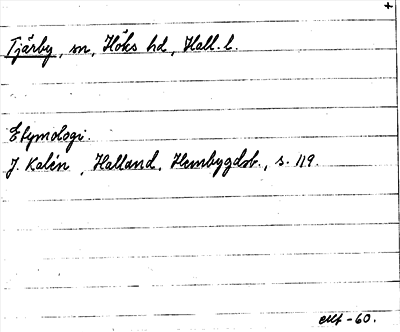 +
Tjärby, sn, Höks hd, Hall. l.
Etymologi.
J. Kalén, Halland. Hembygdsb., s. 119.
-60.